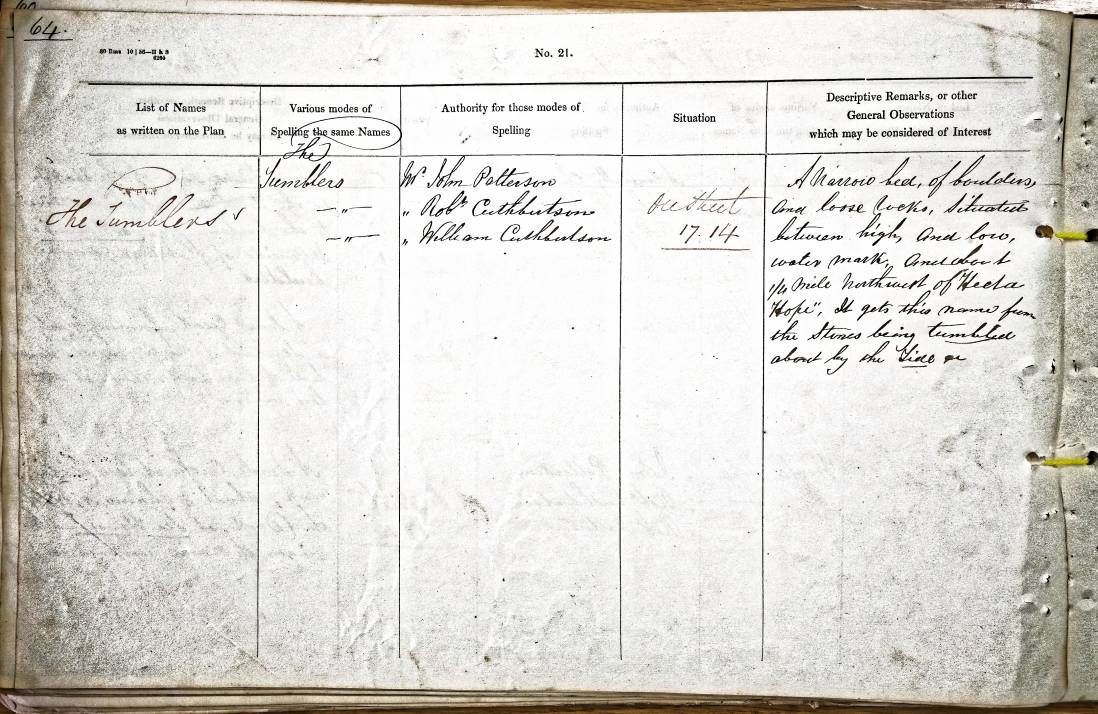 64.
No. 21.
List of Names
as written on the Plan
Various modes of
Spelling the same Names
Authority for those modes of
Spelling
Situation
Descriptive Remarks, or other
General Observations
which may be considered of Interest
The Tumblers
The
Tumblers
—„—
—„—
Mr. John Patterson
„ Robt. Cuthbertson
„ William Cuthbertson
On Sheet
17.14
A Narrow bed, of boulders,
and loose rocks, Situated
between high, and low,
water mark, And about
1/4 Mile Northwest of "Heeta
Hope", It gets this name from
the Stones being tumbled
about by the Tide